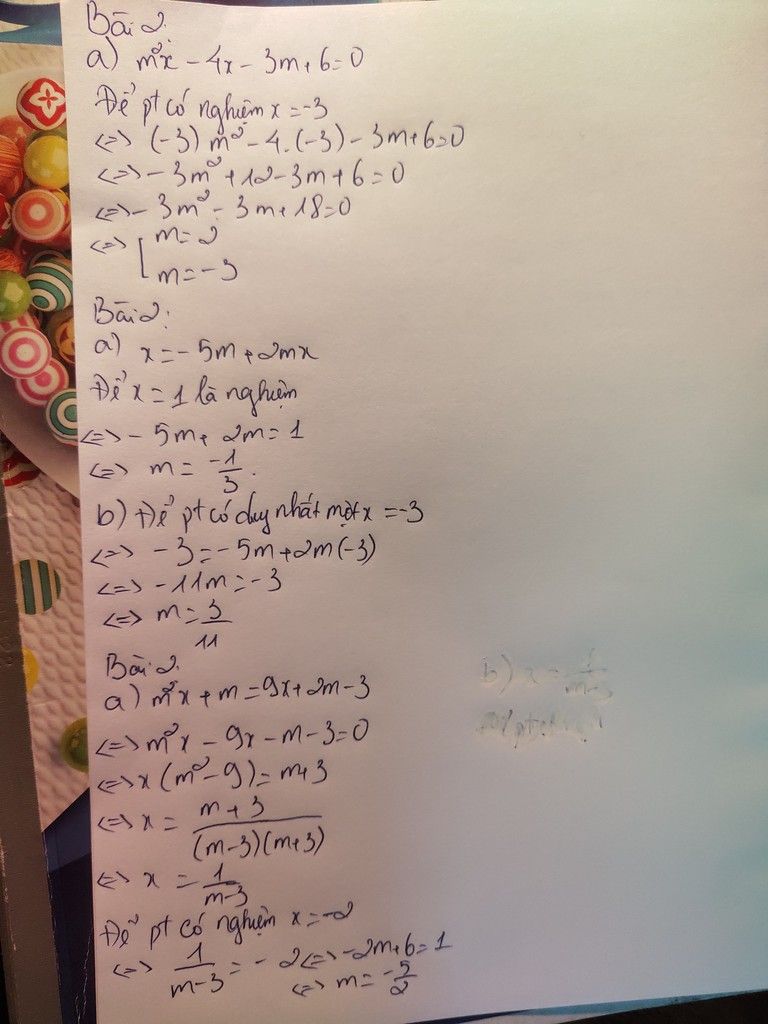 Bài 2.
a) m²x - 4x - 3m + 6 = 0
Để pt có nghiệm x = -3
<=> (-3) m² - 4.(-3) - 3m + 6 = 0
<=> - 3m² + 12 - 3m + 6 = 0
<=> - 3m² - 3m + 18 = 0
<=> [ m = 2
m = -3
Bài 2:
a) x = - 5m + 2mx
Để x = 1 là nghiệm
<=> - 5m + 2m = 1
<=> m = -1/3.
b) Để pt có duy nhất một x = -3
<=> -3 = -5m + 2m(-3)
<=> -11m = -3
<=> m = 3/11
Bài 2.
a) m²x + m = 9x + 2m - 3
<=> m²x - 9x - m - 3 = 0
<=> x (m² - 9) = m + 3
<=> x = m + 3/(m-3)(m+3)
<=> x = 1/m-3
Để pt có nghiệm x = -2
<=> 1/m-3 = - 2 <=> -2m + 6 = 1
<=> m = -5/2
b) x = 1/m-3